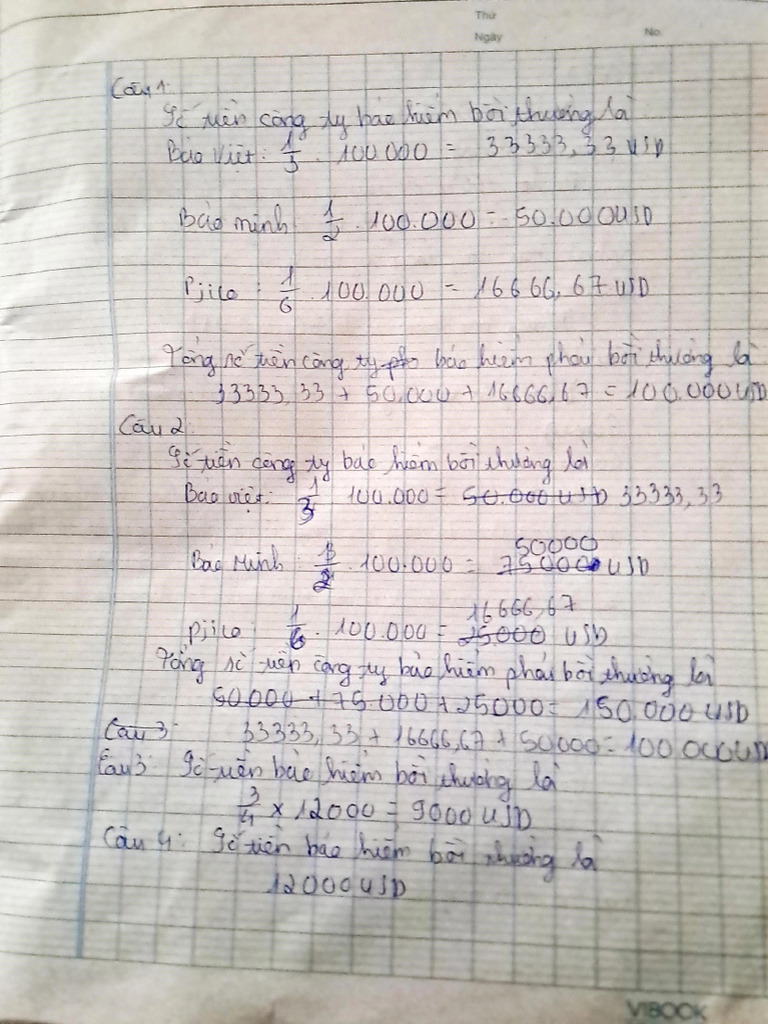 Thứ
Ngày
No.
Câu 1:
Số tiền công ty bảo hiểm bồi thường là
Bảo Việt: 1/3 . 100.000 = 33333,33 USD
Bảo minh 1/2 . 100.000 = 50.000 USD
Pjico : 1/6 100.000 = 16666,67 USD
Tổng số tiền công ty ph bảo hiểm phải bồi thường là
33333,33 + 50.000 + 16666,67 = 100.000 USD
Câu 2
Số tiền công ty bảo hiểm bồi thường là
Bảo việt: 1/3 100.000 = 50.000 USD 33333,33
50000
Bảo Minh 1/2 . 100.000 = 75000 USD
16666,67
Pjico 1/6 . 100.000 = 25000 USD
Tổng số tiền công ty bảo hiểm phải bồi thường là
50.000 + 75.000 + 25000 = 150.000 USD
Câu 3 33333,33 + 16666,67 + 50000 = 100.000 USD
Câu 3 Số tiền bảo hiểm bồi thường là
3/4 x 12000 = 9000 USD
Câu 4: Số tiền bảo hiểm bồi thường là
12000 USD
VIBOOK